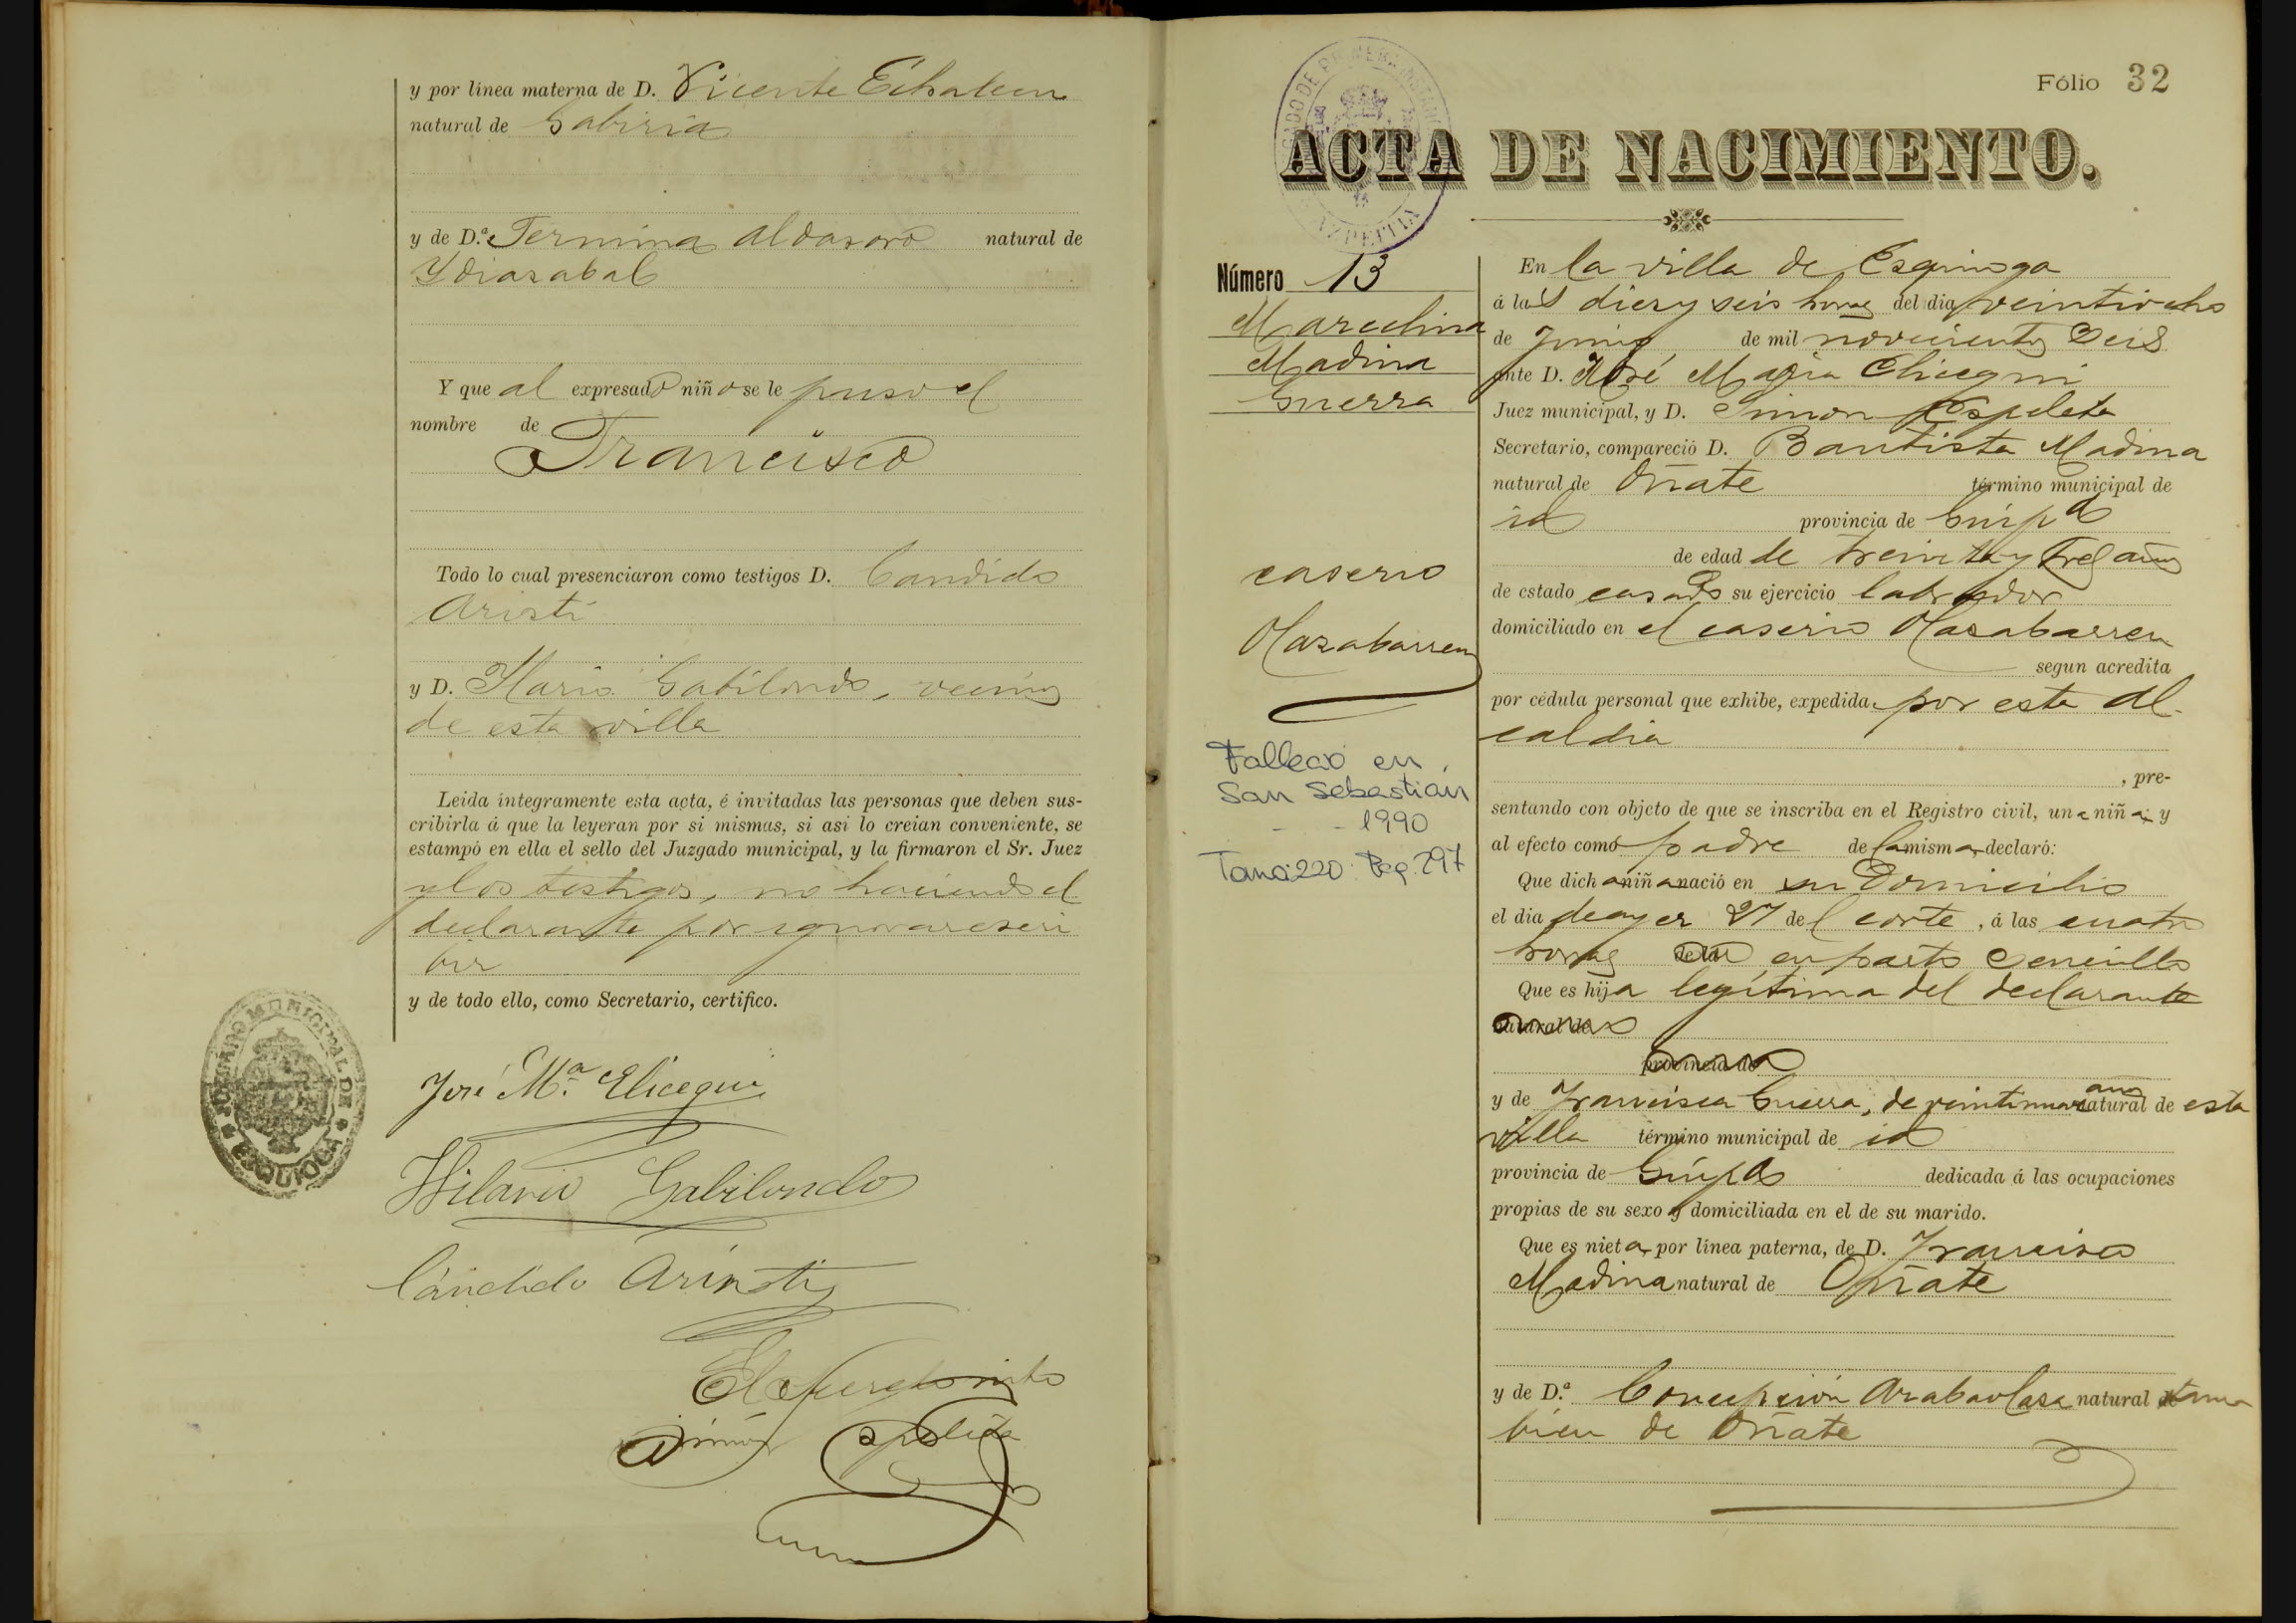 y por línea materna de D. Vicente Echaleeu
natural de Gabiria
y de D.ª Fermina Aldasoro natural de
Ydiazabal
Y que al expresado niño se le puso el
nombre de
Francisco
Todo lo cual presenciaron como testigos D. Candido
Aristi
y D. Ilario Gabilondo, vecinos
de esta villa
Leida íntegramente esta acta, é invitadas las personas que deben sus-
cribirla á que la leyeran por si mismas, si asi lo creian conveniente, se
estampó en ella el sello del Juzgado municipal, y la firmaron el Sr. Juez
y los testigos, no haciendo el
declarante por ignorar escri
bir
y de todo ello, como Secretario, certifico.
JUZGADO MUNICIPAL DE EZQUIOGA
José M.ª Elicegui
Hilario Gabilondo
Cándido Aristi
Simón Espeleta
Fólio 32
JUZGADO DE PRIMERA INSTANCIA
AZPEITIA
ACTA DE NACIMIENTO.
Número 13
Marcelina
Madina
Guerra
caserio
Olazabarren
Falleció en
San Sebastián
- - 1990
Tomo: 220 Pag. 297
En la villa de Ezquioga
á las diez y seis horas del dia veintiocho
de Junio de mil novecientos seis
ante D. José Maria Elicegui
Juez municipal, y D. Simon Espeleta
Secretario, compareció D. Bautista Madina
natural de Oñate término municipal de
id provincia de Guipª
de edad de treinta y tres años
de estado casado su ejercicio labrador
domiciliado en el caserio Olazabarren
segun acredita
por cédula personal que exhibe, expedida por esta Al-
caldia
, pre-
sentando con objeto de que se inscriba en el Registro civil, una niña y
al efecto como padre de la misma, declaró:
Que dicha niña nació en su domicilio
el dia de ayer 27 del corte, á las cuatro
horas de la en parto sencillo
Que es hija legítima del declarante
natural de
provincia de
y de Francisca Guerra, de veintinueve años natural de esta
villa término municipal de id
provincia de Guipª dedicada á las ocupaciones
propias de su sexo y domiciliada en el de su marido.
Que es nieta, por línea paterna, de D. Francisco
Madina natural de Oñate
y de D.ª Concepción Arabaolaza natural tam
bien de Oñate